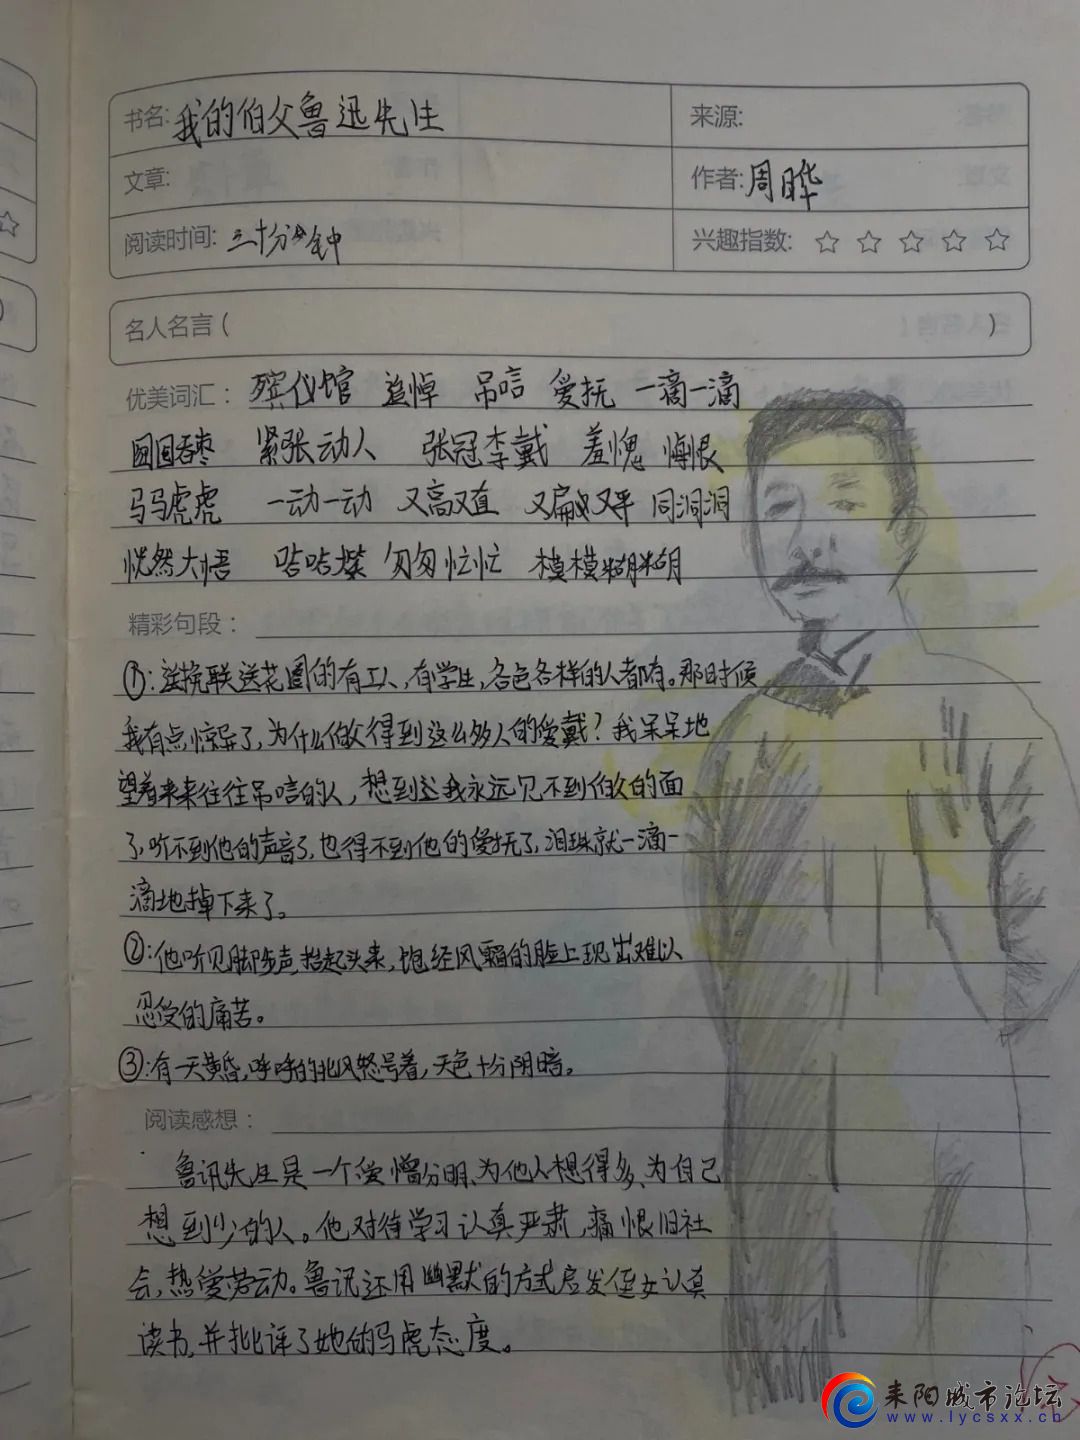 书名:我的伯父鲁迅先生 来源:
文章: 作者:周晔
阅读时间:三十分钟 兴趣指数: ☆ ☆ ☆ ☆ ☆
名人名言( )
优美词汇: 殡仪馆 追悼 吊唁 爱抚 一滴一滴
囫囵吞枣 紧张动人 张冠李戴 羞愧 悔恨
马马虎虎 一动一动 又高又直 又扁又平 同洞洞
恍然大悟 咭咭 匆匆忙忙 模模糊糊
精彩句段:
①:送挽联送花圈的有工人,有学生,各色各样的人都有。那时候
我有点惊异了,为什么伯父得到这么多人的爱戴?我呆呆地
望着来来往往吊唁的人,想到这我永远见不到伯父的面
了,听不到他的声音了,也得不到他的爱抚了,泪珠就一滴一
滴地掉下来了。
②:他听见脚步声抬起头来,饱经风霜的脸上现出难以
忍受的痛苦。
③:有一天黄昏,呼呼的北风怒号着,天色十分阴暗。
阅读感想:
鲁讯先生是一个爱憎分明、为他人想得多、为自己
想到少的人。他对待学习认真严肃,痛恨旧社
会,热爱劳动。鲁讯还用幽默的方式启发侄女认真
读书,并批评了她的马虎态度。
耒阳城市论坛
www.lycsxx.cn